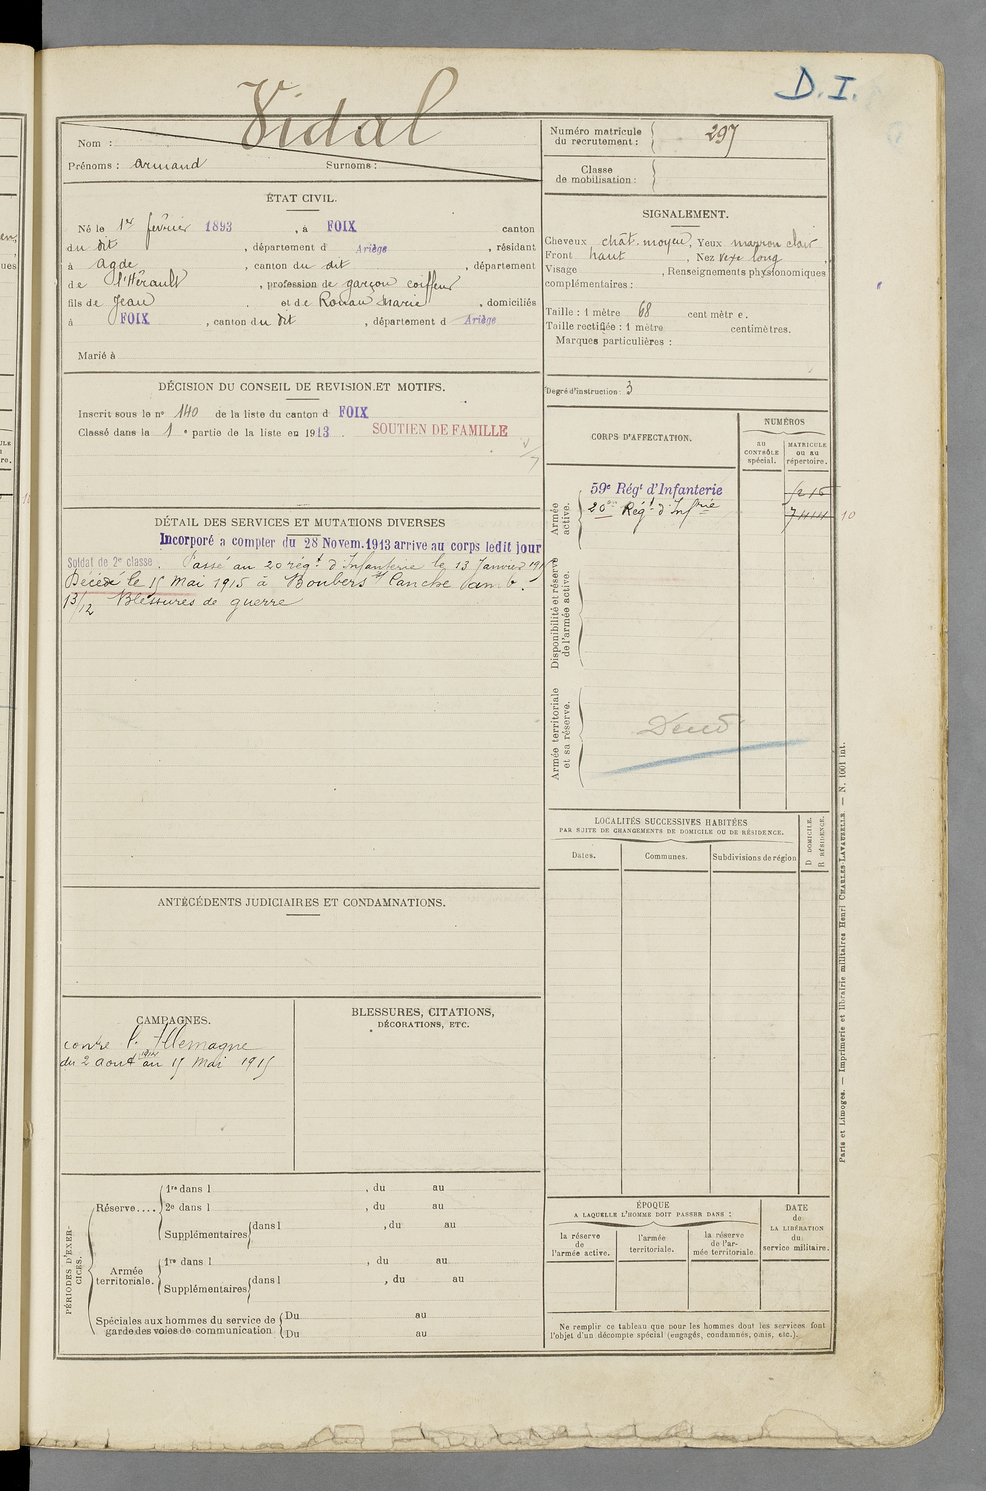 D. I.
Vidal
Nom :
Prénoms : Armand Surnoms :
Numéro matricule du recrutement : 297
Classe de mobilisation :
ÉTAT CIVIL.
Né le 1er février 1893, à FOIX canton
du dit, département d Ariège, résidant
à Agde, canton du dit, département
de l'Hérault, profession de garçon coiffeur
fils de Jean et de Rouan Marie, domiciliés
à FOIX, canton du dit, département d Ariège
Marié à
SIGNALEMENT.
Cheveux chât. moyen, Yeux marron clair
Front haut, Nez vexe long,
Visage , Renseignements physionomiques
complémentaires :
Taille : 1 mètre 68 centimètre.
Taille rectifiée : 1 mètre centimètres.
Marques particulières :
Degré d'instruction : 3
DÉCISION DU CONSEIL DE REVISION ET MOTIFS.
Inscrit sous le n° 140 de la liste du canton d FOIX
Classé dans la 1e partie de la liste en 1913. SOUTIEN DE FAMILLE
DÉTAIL DES SERVICES ET MUTATIONS DIVERSES
Incorporé a compter du 28 Novem. 1913 arrive au corps ledit jour
Soldat de 2e classe. Passé au 20 rég.t d'Infanterie le 13 Janvier 191
Décédé le 15 Mai 1915 à Boubers
13/12 Blessures de guerre
CORPS D'AFFECTATION.
NUMÉROS
au CONTRÔLE spécial.
MATRICULE ou au répertoire.
Armée active.
59e Régt d'Infanterie
20e Régt d'Infrie
10
Disponibilité et réserve de l'armée active.
Armée territoriale et sa réserve.
LOCALITÉS SUCCESSIVES HABITÉES
PAR SUITE DE CHANGEMENTS DE DOMICILE OU DE RÉSIDENCE.
Dates.
Communes.
Subdivisions de région
D DOMICILE.
R RÉSIDENCE.
ANTÉCÉDENTS JUDICIAIRES ET CONDAMNATIONS.
CAMPAGNES.
contre l'Allemagne
du 2 août 1914 au 15 Mai 1915
BLESSURES, CITATIONS,
DÉCORATIONS, ETC.
PÉRIODES D'EXERCICES.
Réserve....
1re dans l , du au
2e dans l , du au
Supplémentaires dans l , du au
Armée territoriale.
1re dans l , du au
Supplémentaires dans l , du au
Spéciales aux hommes du service de garde des voies de communication
Du au
Du au
ÉPOQUE
A LAQUELLE L'HOMME DOIT PASSER DANS :
la réserve de l'armée active.
l'armée territoriale.
la réserve de l'armée territoriale
DATE de LA LIBÉRATION du service militaire.
Ne remplir ce tableau que pour les hommes dont les services font
l'objet d'un décompte spécial (engagés, condamnés, omis, etc.).
Paris et Limoges. — Imprimerie et librairie militaires Henri CHARLES-LAVAUZELLE. — N. 1001 int.